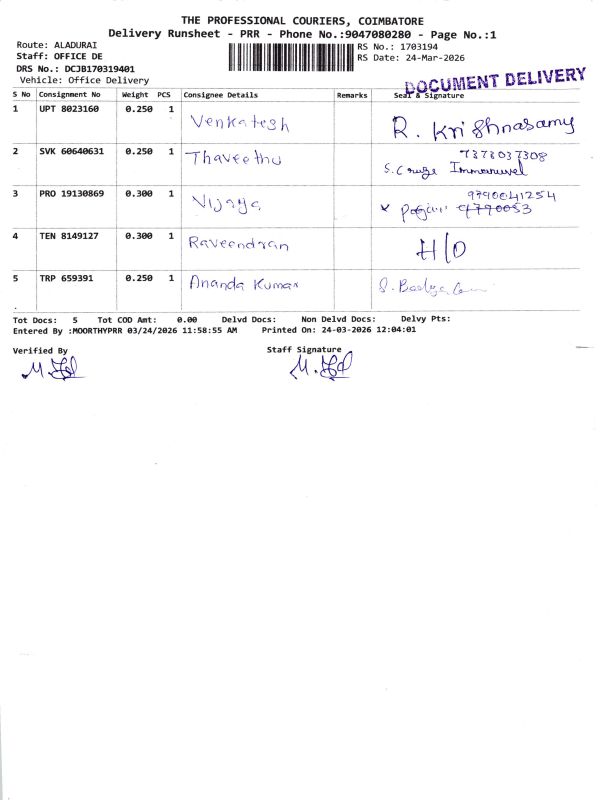 THE PROFESSIONAL COURIERS, COIMBATORE
Delivery Runsheet - PRR - Phone No.:9047080280 - Page No.:1
Route: ALADURAI
RS No.: 1703194
Staff: OFFICE DE
RS Date: 24-Mar-2026
DRS No.: DCJB170319401
Vehicle: Office Delivery
DOCUMENT DELIVERY
S No Consignment No Weight PCS Consignee Details Remarks Seal & Signature
1 UPT 8023160 0.250 1 Venkatesh R. Krishnasamy
2 SVK 60640631 0.250 1 Thaveethu 7373037308
S. Immanuvel
3 PRO 19130869 0.300 1 Vijaya 9790041254
4 TEN 8149127 0.300 1 Raveendran H/O
5 TRP 659391 0.250 1 Ananda Kumar
Tot Docs: 5 Tot COD Amt: 0.00 Delvd Docs: Non Delvd Docs: Delvy Pts:
Entered By :MOORTHYPRR 03/24/2026 11:58:55 AM Printed On: 24-03-2026 12:04:01
Verified By Staff Signature